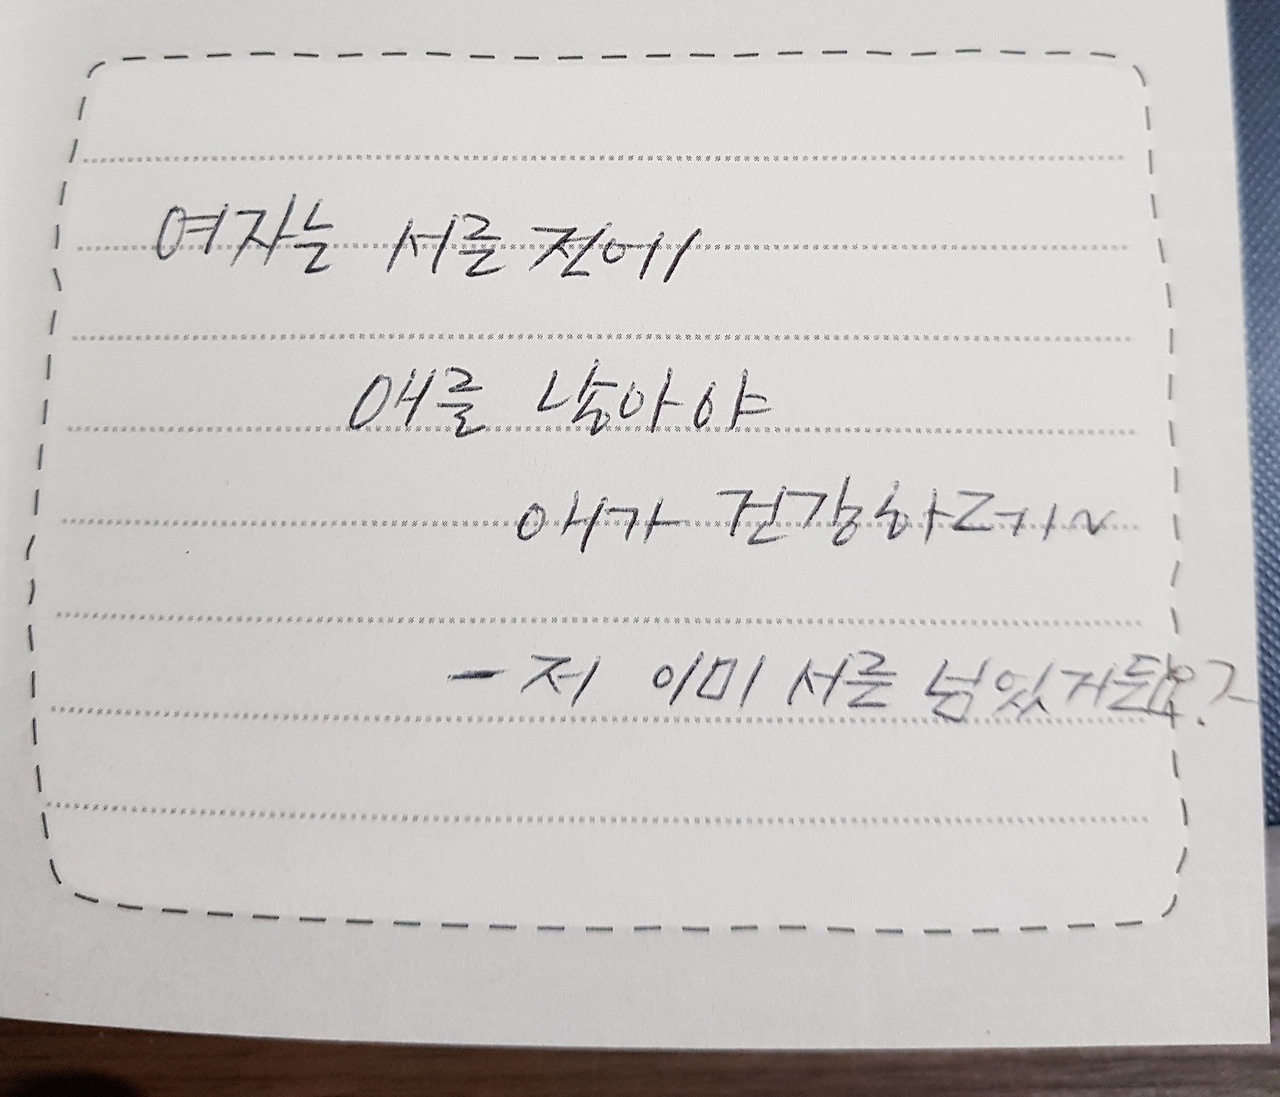 여자는 서른 전에
애를 낳아야
애가 건강하고~
- 저 이미 서른 넘었거든요?